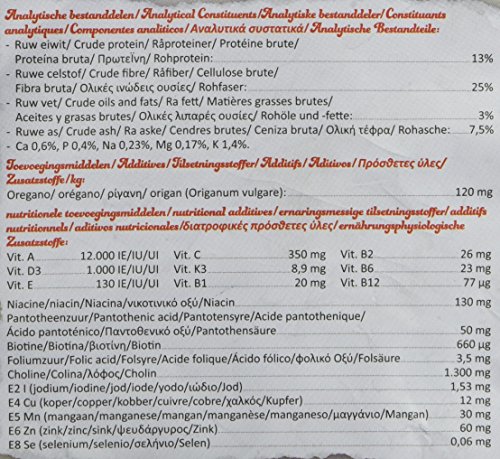 Analytische bestanddelen/Analytical Constituents/Analytiske bestanddeler/Constituants
analytiques/Componentes analiticos/Αναλυτικά συστατικά/Analytische Bestandteile:
- Ruw eiwit/ Crude protein/ Råproteiner/ Protéine brute/
Proteína bruta/ Πρωτεΐνη/ Rohprotein: 13%
- Ruwe celstof/ Crude fibre/ Råfiber/ Cellulose brute/
Fibra bruta/ Ολικές ινώδεις ουσίες/ Rohfaser: 25%
- Ruw vet/ Crude oils and fats/ Ra fett/ Matières grasses brutes/
Aceites y grasas brutes/ Ολικές λιπαρές ουσίες/ Rohöle und -fette: 3%
- Ruwe as/ Crude ash/ Ra aske/ Cendres brutes/ Ceniza bruta/ Ολική τέφρα/ Rohasche: 7,5%
- Ca 0,6%, P 0,4%, Na 0,23%, Mg 0,17%, K 1,4%.
Toevoegingsmiddelen/Additives/Tilsetningsstoffer/Additifs/Aditivos/Πρόσθετες ύλες/
Zusatzstoffe/kg:
Oregano/ orégano/ ρίγανη/ origan (Origanum vulgare): 120 mg
nutritionele toevoegingsmiddelen/nutritional additives/ernaringsmessige tilsetningsstoffer/additifs
nutritionnels/aditivos nutricionales/διατροφικές πρόσθετες ύλες/ernährungsphysiologische
Zusatzstoffe:
Vit. A 12.000 IE/IU/UI Vit. C 350 mg Vit. B2 26 mg
Vit. D3 1.000 IE/IU/UI Vit. K3 8,9 mg Vit. B6 23 mg
Vit. E 130 IE/IU/UI Vit. B1 20 mg Vit. B12 77 µg
Niacine/niacin/Niacina/νικοτινικό οξύ/Niacin 130 mg
Pantotheenzuur/Pantothenic acid/Pantotensyre/Acide pantothenique/
Ácido pantoténico/Παντοθενικό οξύ/Pantothensäure 50 mg
Biotine/Biotina/βιοτίνη/Biotin 660 µg
Foliumzuur/Folic acid/Folsyre/Acide folique/Ácido fólico/φολικό Οξύ/Folsäure 3,5 mg
Choline/Colina/λόφος/Cholin 1.300 mg
E2 I (jodium/iodine/jod/iode/yodo/ιώδιο/Jod) 1,53 mg
E4 Cu (koper/copper/kobber/cuivre/cobre/χαλκός/Kupfer) 12 mg
E5 Mn (mangaan/manganese/mangan/manganèse/manganeso/μαγγάνιο/Mangan) 30 mg
E6 Zn (zink/zinc/sink/ψευδάργυρος/Zink) 60 mg
E8 Se (selenium/selenio/σελήνιο/Selen) 0,06 mg